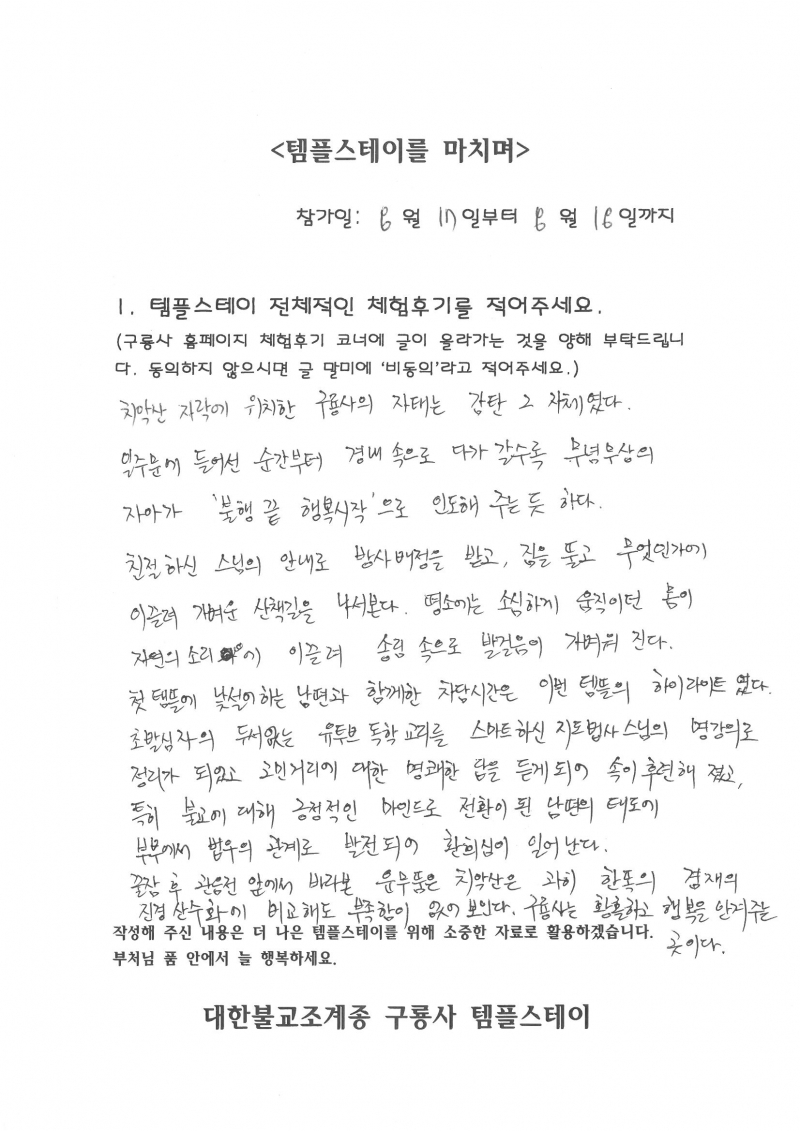 <템플스테이를 마치며>
참가일: 6 월 17일부터 6 월 18일까지
1. 템플스테이 전체적인 체험후기를 적어주세요.
(구룡사 홈페이지 체험후기 코너에 글이 올라가는 것을 양해 부탁드립니
다. 동의하지 않으시면 글 말미에 '비동의'라고 적어주세요.)
치악산 자락에 위치한 구룡사의 자태는 감탄 그 자체였다.
일주문에 들어선 순간부터 경내 속으로 다가 갈수록 무념무상의
자아가 '불행 끝 행복시작'으로 인도해 주는듯 하다.
친절하신 스님의 안내로 방사배정을 받고, 짐을 풀고 무엇인가에
이끌려 가벼운 산책길을 나서본다. 평소에는 소심하게 움직이던 몸이
자연의 소리에 이끌려 송림 속으로 발걸음이 가벼워 진다.
첫 템플에 낯설어하는 남편과 함께한 차담시간은 이번 템플의 하이라이트 였다.
초발심자의 두서없는 유투브 독학 교리를 스마트하신 지도법사스님의 명강의로
정리가 되었고 고민거리에 대한 명쾌한 답을 듣게되어 속이 후련해 졌고,
특히 불교에 대해 긍정적인 마인드로 전환이 된 남편의 태도에
부부에서 법우의 관계로 발전되어 환희심이 일어난다.
꿀잠 후 관음전 앞에서 바라본 운무품은 치악산은 과히 한폭의 겸재의
진경산수화에 비교해도 부족함이 없어보인다. 구룡사는 황홀하고 행복을 안겨주는
곳이다.
작성해 주신 내용은 더 나은 템플스테이를 위해 소중한 자료로 활용하겠습니다.
부처님 품 안에서 늘 행복하세요.
대한불교조계종 구룡사 템플스테이